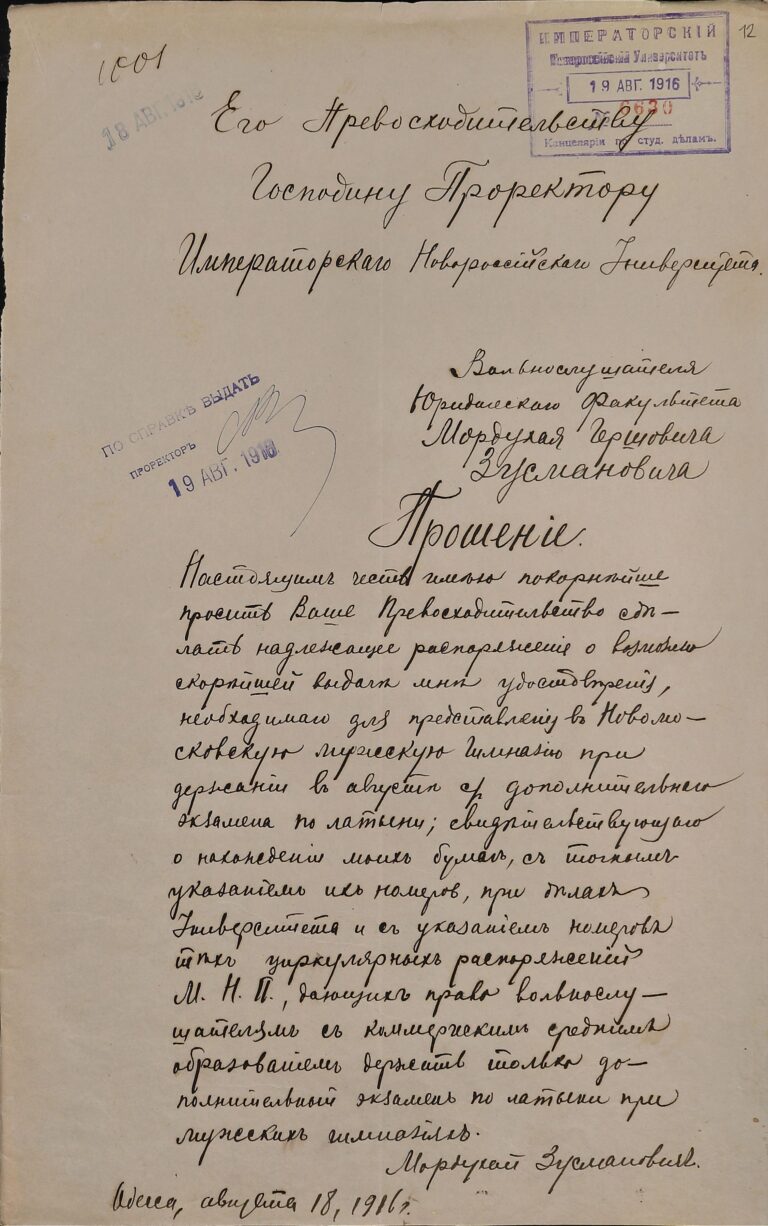 1001
12
18 АВГ 1916
ИМПЕРАТОРСКІЙ
Новороссійскій Университетъ
19 АВГ. 1916
6630
Канцелярія по студ. дѣламъ.
Его Превосходительству
Господину Проректору
Императорскаго Новороссійскаго Университета.
Вольнослушателя
Юридическаго Факультета
Мордухая Гершовича
Зусмановича
ПО СПРАВКѢ ВЫДАТЬ
ПРОРЕКТОРЪ
19 АВГ. 1916
Прошеніе.
Настоящимъ честь имѣю покорнѣйше
просить Ваше Превосходительство сдѣ-
лать надлежащее распоряженіе о возможно
скорѣйшей выдачѣ мнѣ удостовѣренія,
необходимаго для представленія въ Новомо-
сковскую мужескую гимназію при
держаніи въ августѣ с/г дополнительнаго
экзамена по латыни; свидѣтельствующаго
о нахожденіи моихъ бумагъ, съ точнымъ
указаніемъ ихъ номеровъ, при дѣлахъ
Университета и съ указаніемъ номеровъ
тѣхъ циркулярныхъ распоряженій
М. Н. П., дающихъ право вольнослу-
шателямъ съ коммерческимъ среднимъ
образованіемъ держать только до-
полнительный экзаменъ по латыни при
мужескихъ гимназіяхъ.
Мордухай Зусмановичъ.
Одесса, августа 18, 1916 г.